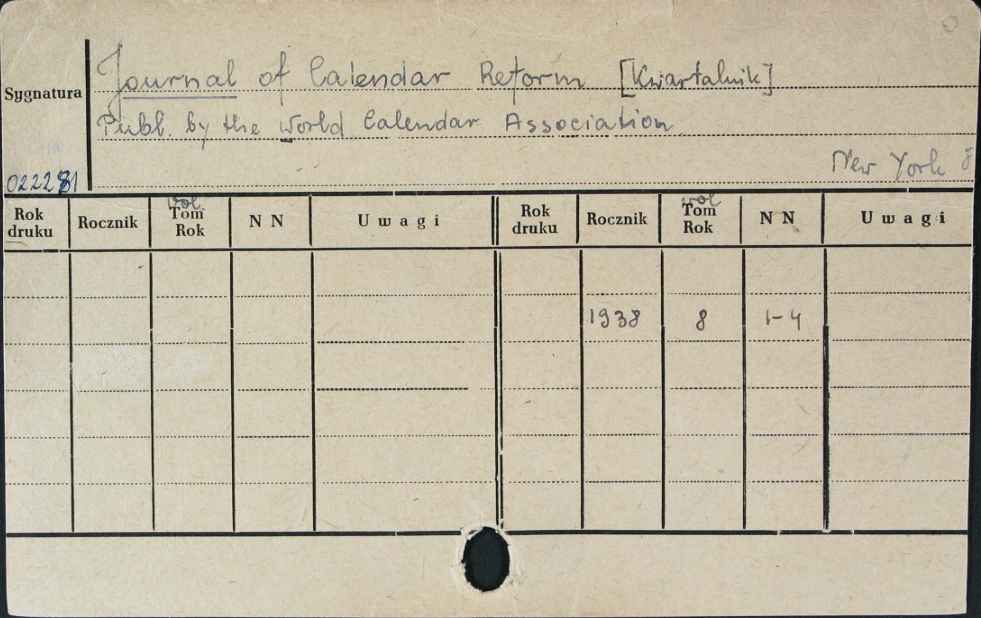 Journal of Calendar Reform [Kwartalnik]
Sygnatura
Publ. by the World Calendar Association
New York 8
022281
Rok druku Rocznik vol. Tom Rok N N Uwagi Rok druku Rocznik vol Tom Rok N N Uwagi
1938 8 1-4